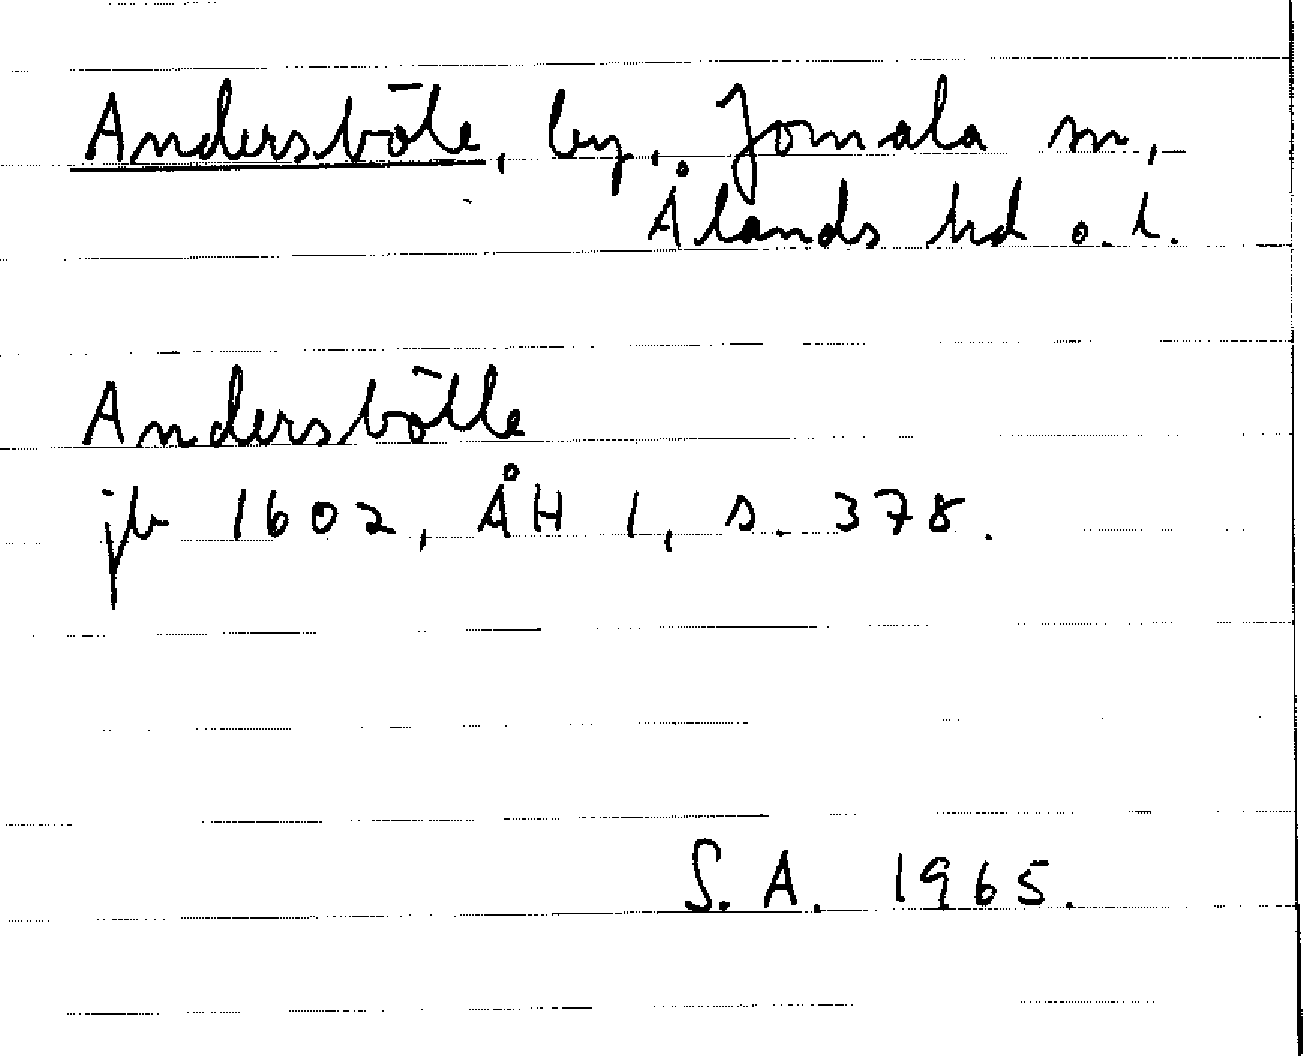 Andersböle, by, Jomala sn,
Ålands hd o. l.
Andersbölle
jb 1602, ÅH 1, s. 378.
S. A. 1965.